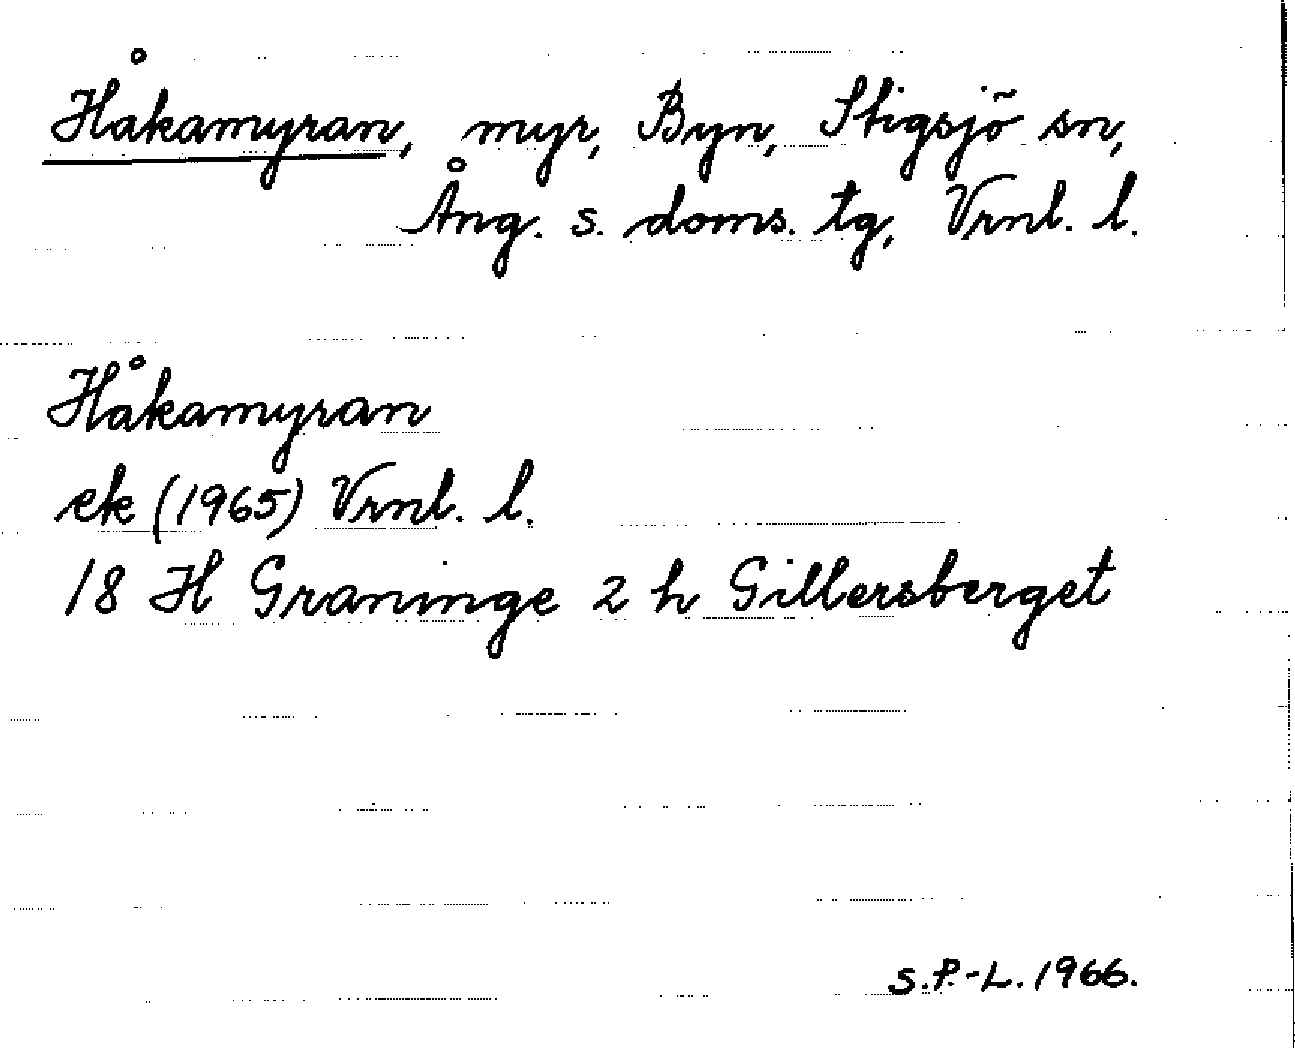 Håkamyran, myr, Byn, Stigsjö sn,
Ång. s. doms. tg, Vrnl. l.
Håkamyran
ek (1965) Vrnl. l.
18 H Graninge 2 h Gillersberget
S.P.-L. 1966.